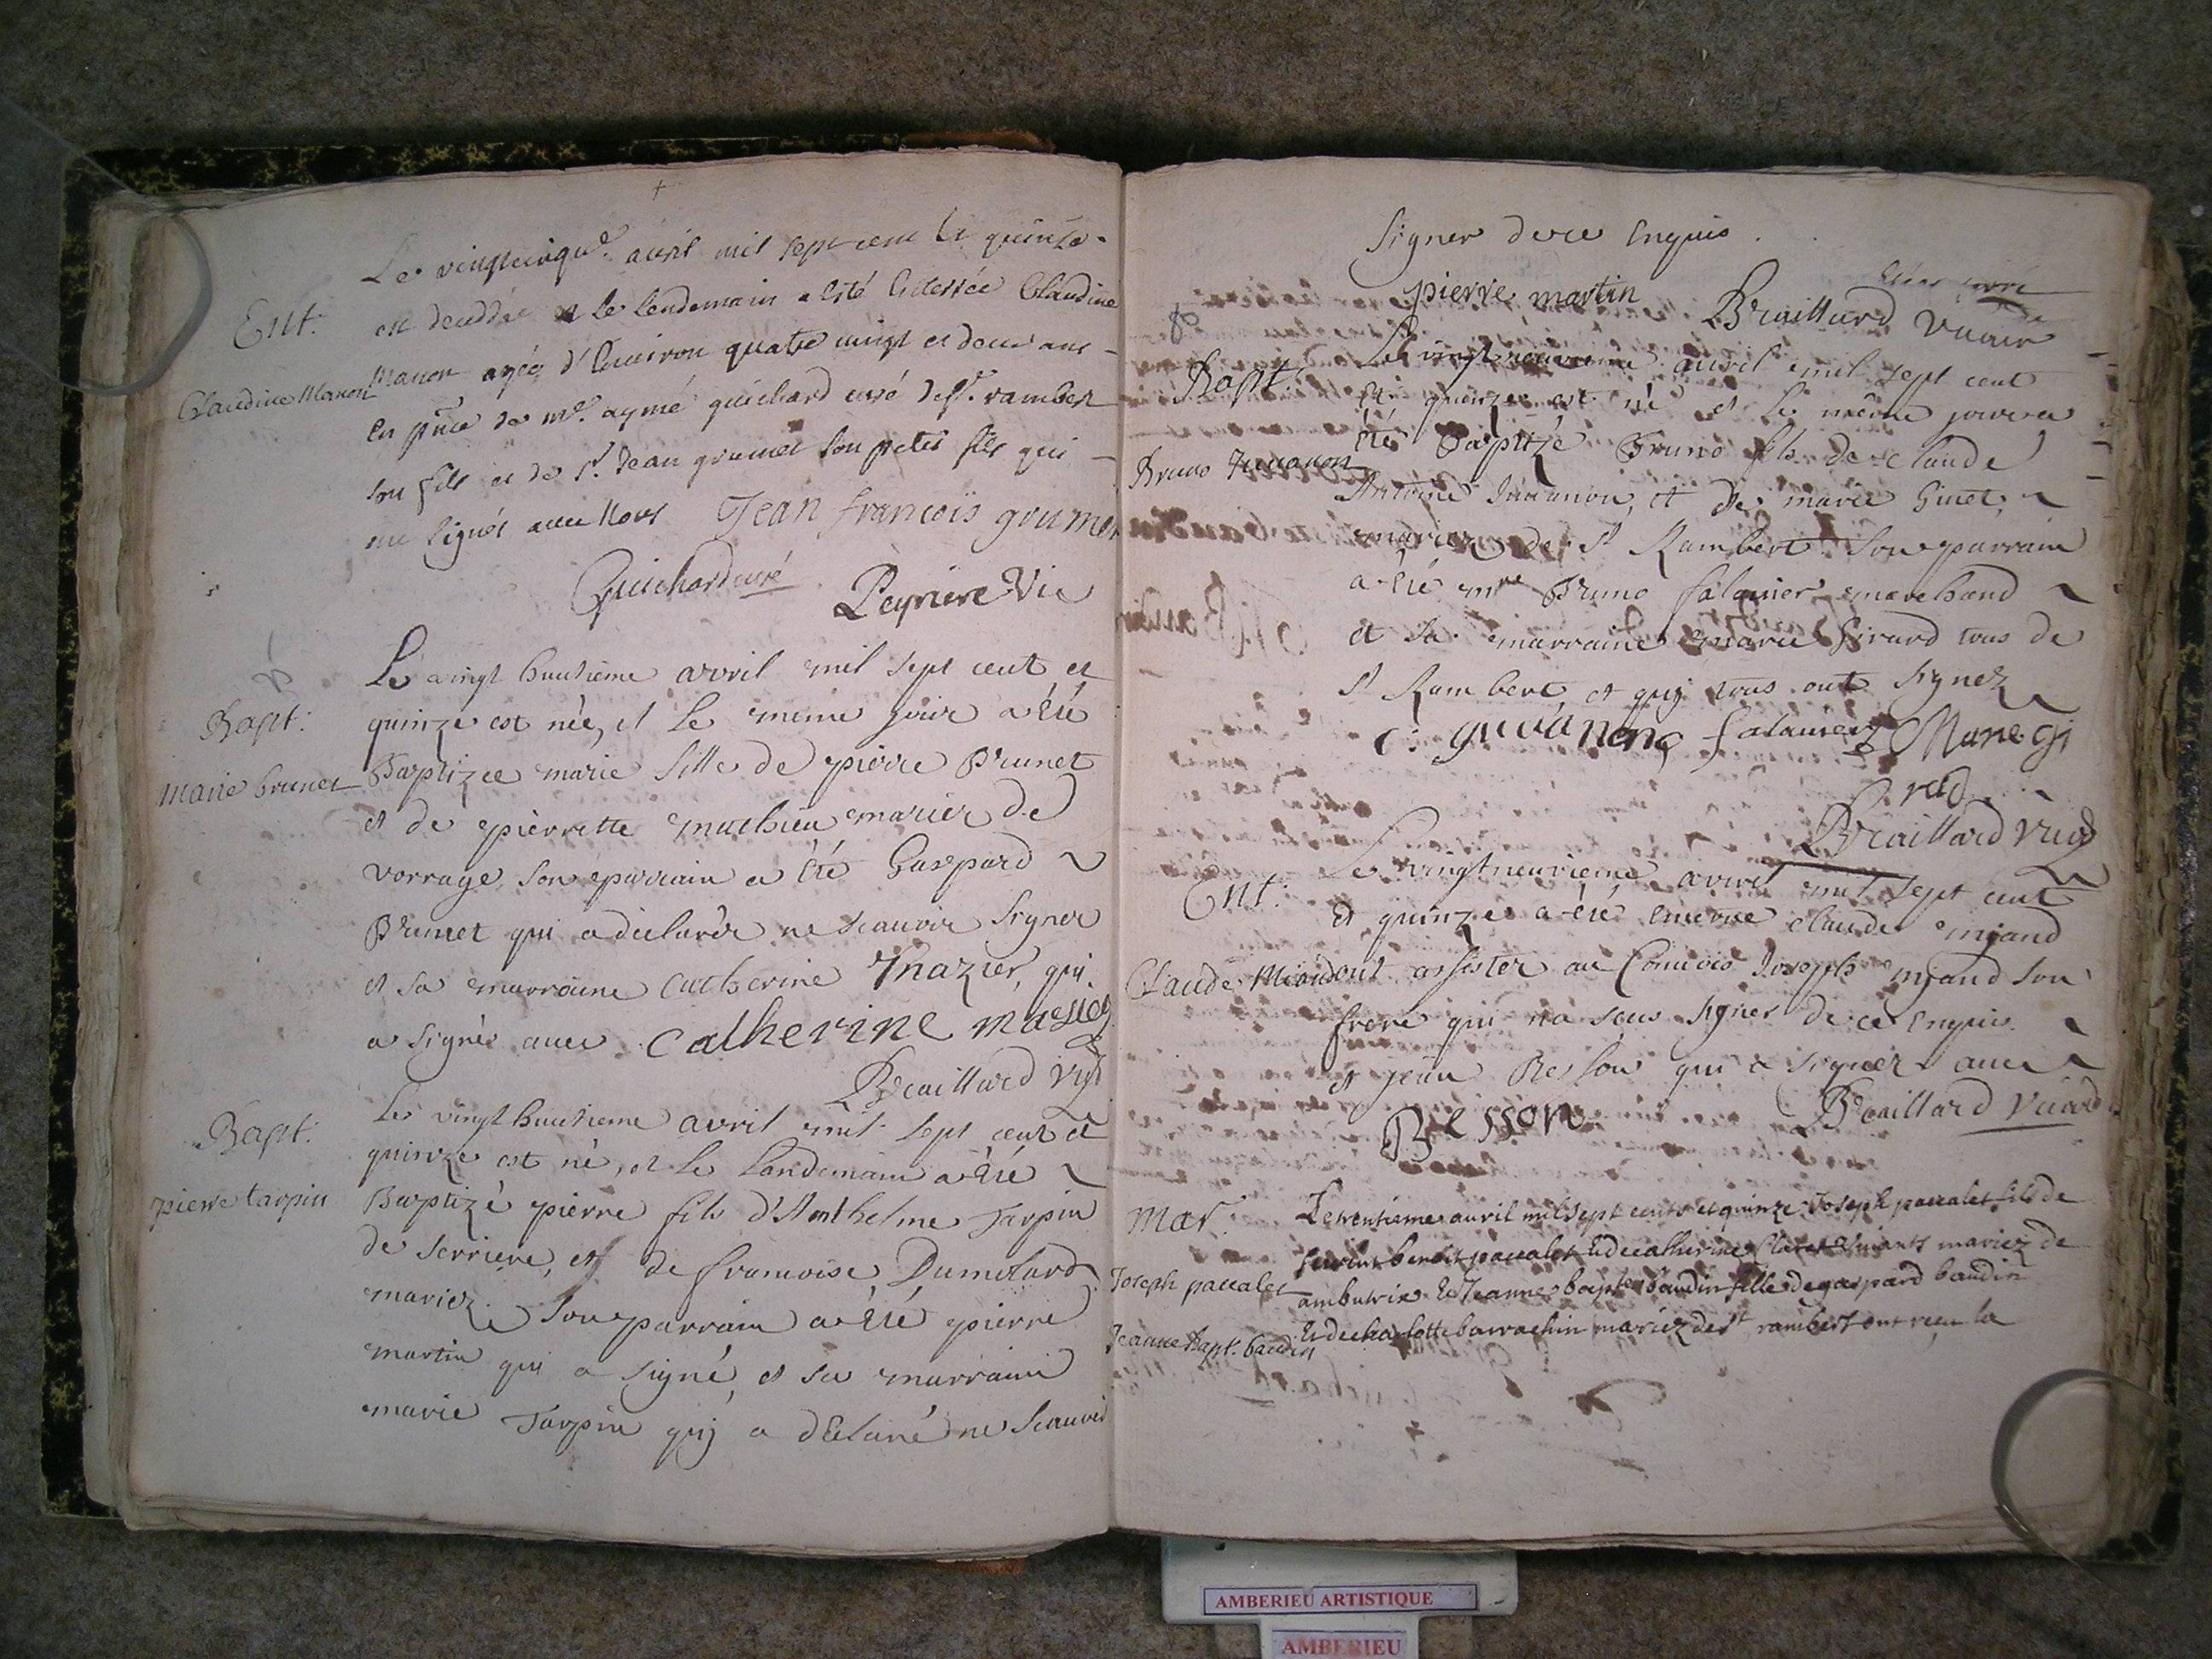 Le vingtcinqe. avril mil sept cent et quinze
Ent:
est deceddée et le lendemain a esté enterrée Claudine
Claudine Manon
Manon agée d'Environ quatre vingt et deux ans
en pnce de mre aymé guichard curé de st. rambert
son fils et de sr. Jean grumet son petit fils qui
ont signés avec Nous Jean françois grumet
Guichard curé Peyriere Vic
Le vingt huitieme avril mil sept cent et
Bapt:
quinze est née, et le meme jour a été
marie brunet
Baptizee marie fille de pierre Brunet
et de pierrette mathieu mariez de
vorrage son parrain a été Gaspard
Brunet qui a declarér ne scauoir signer
et sa marraine catherine mazier, qui
a signée avec catherine mazier
Braillard
Le vingt huitieme avril mil sept cent et
Bapt:
quinze est né, et le landemain a été
pierre tarpin
Baptizé pierre fils d'Anthelme Tarpin
de serriere, et de francoise Dumolard
mariez. Son parrain a été pierre
martin qui a signé, et sa marraine
marie Tarpin quj a déclaré ne scauoir
signer de ce Enquis.
pierre martin Braillard vicair
Le vingt neuvieme auril mil sept cent
Bapt:
et quinze est né et le même jour a
été Baptizé Bruno fils de claude
Bruno Juvanon
Antoine Juvanon, et de marie Ginet,
mariez de St Rambert. Son parrain
a été mre Bruno falavier marchand
et sa marraine marie Girard tous de
St Rambert et quj tous ont signez
falavier Marie Gi
rard
Braillard
Le vingtneuvieme avvril mil sept cent
Ent:
et quinze a été enterré claude mjand
Claude Miand
ont assister au Convois Joseph mjand son
frere qui na sceus signer de ce enquis.
et jean Besson qui a signer avec
Besson Braillard vicair
Le trentieme auril mil sept cents et quinze Joseph paccalet fils de
Mar.
benoit paccalet Et de catherine vivants mariez de
Joseph paccalet
ambutrix Et Jeanne bapte baudin fille de gaspard baudin
Jeanne Bapt. baudin
Et de charlotte barrachin mariez de st rambert ont receu la
AMBERIEU ARTISTIQUE
AMBERIEU